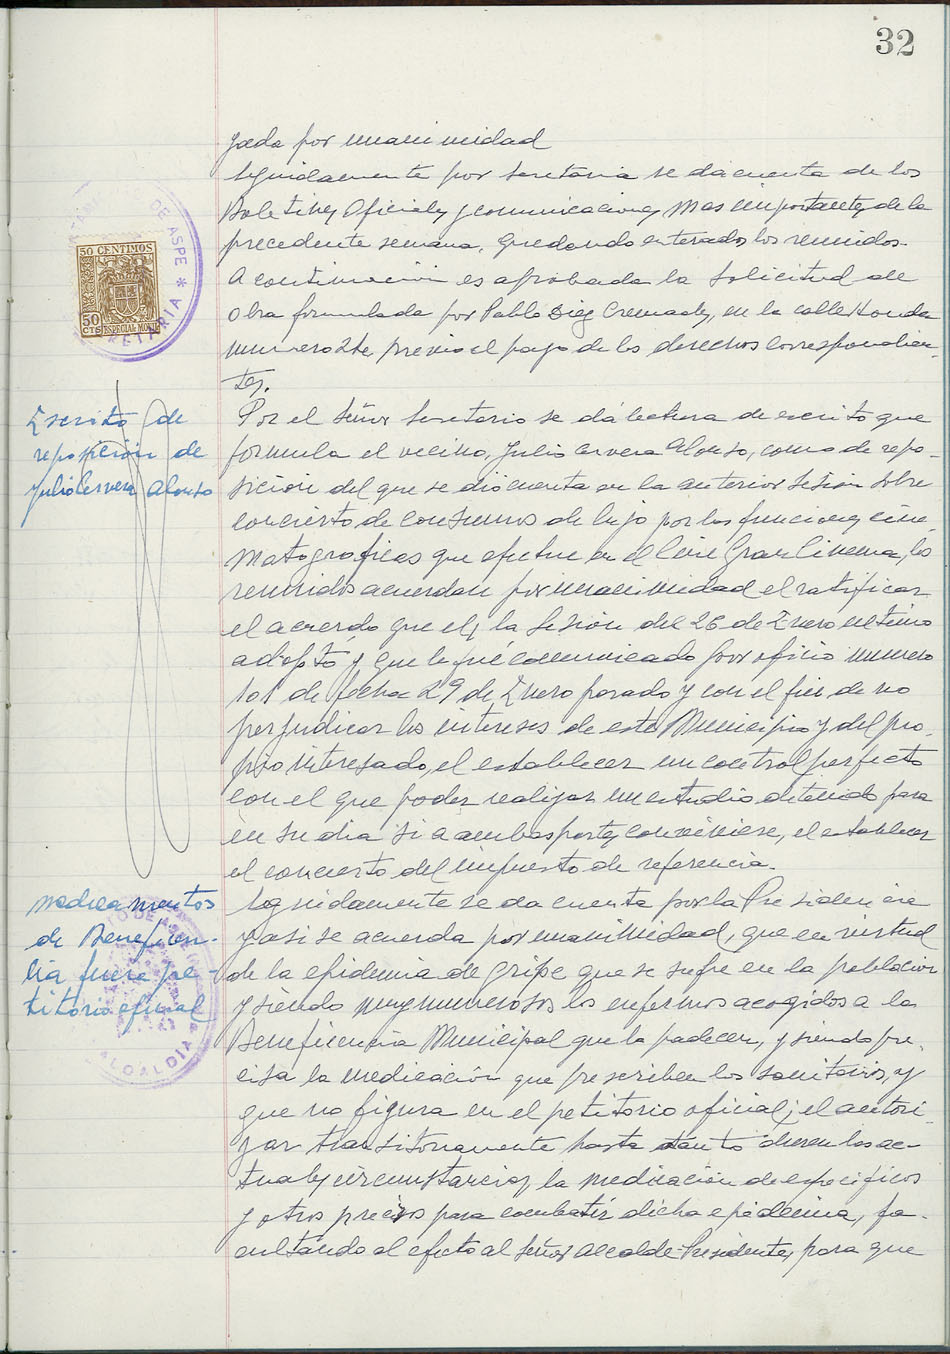 32
yada por unanimidad
Seguidamente por Secretaria se da cuenta de los
Boletines Oficiales y comunicaciones mas importantes de la
precedente semana, quedando enterados los reunidos.
A continuación es aprobada la solicitud de
obra formulada por Pablo Diez Cremades, en la calle Honda
numero previo el pago de los derechos correspondien-
tes.
Escrito de
reposición de
Julio Cervera Alonso
Por el Señor Secretario se dá lectura de escrito que
formula el vecino, Julio Cervera Alonso, como de repo-
sicion del que se dió cuenta en la anterior sesion sobre
concierto de consumos de lujo por las funciones cine-
matograficas que efectue en el Cine Gran Cinema, los
reunidos acuerdan por unanimidad el ratificar
el acuerdo que en la Sesión del 26 de Enero ultimo
adoptó y que le fué comunicado por oficio numero
101 de fecha 29 de Enero pasado y con el fin de no
perjudicar los intereses de este Municipio y del pro-
pio interesado, el establecer un control perfecto
con el que poder realizar un estudio detenido para
en su dia si a ambas partes conviniese, el establecer
el concierto del impuesto de referencia.
Medicamentos
de Beneficen-
cia fuera pe-
titorio oficial
Seguidamente se da cuenta por la Presidencia
y asi se acuerda por unanimidad, que en virtud
de la epidemia de gripe que se sufre en la poblacion
y siendo muy numerosos los enfermos acogidos a la
Beneficencia Municipal que la padecen, y siendo pre-
cisa la medicación que prescriben los sanitarios, y
que no figura en el petitorio oficial; el autori-
zar transitoriamente hasta tanto duren las ac-
tuales circunstancias, la medicación de especificos
y otros precisos para combatir dicha epidemia, fa-
cultando al efecto al Señor Alcalde-Presidente, para que
50 CENTIMOS
50
CTS
ESPECIAL MOVIL
DE ASPE * SECRETARIA
AYUNTAMIENTO DE ASPE
ALCALDIA